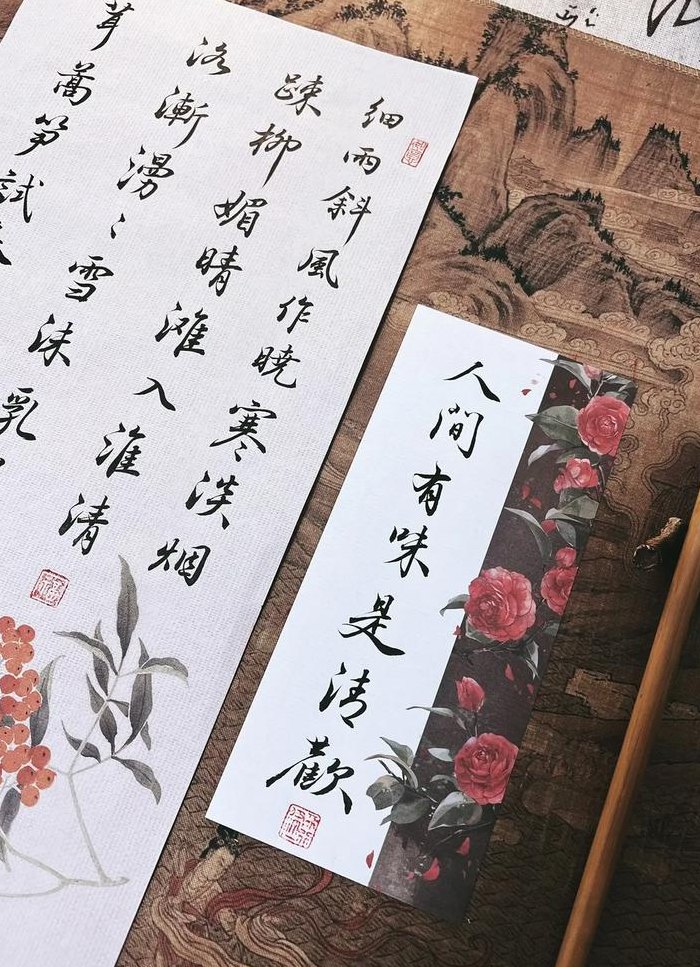 細雨斜風作曉寒淡烟
疎柳媚晴灘入淮清
洛漸漫〻雪沫乳
茸蒿笋試春
人間有味是清歡